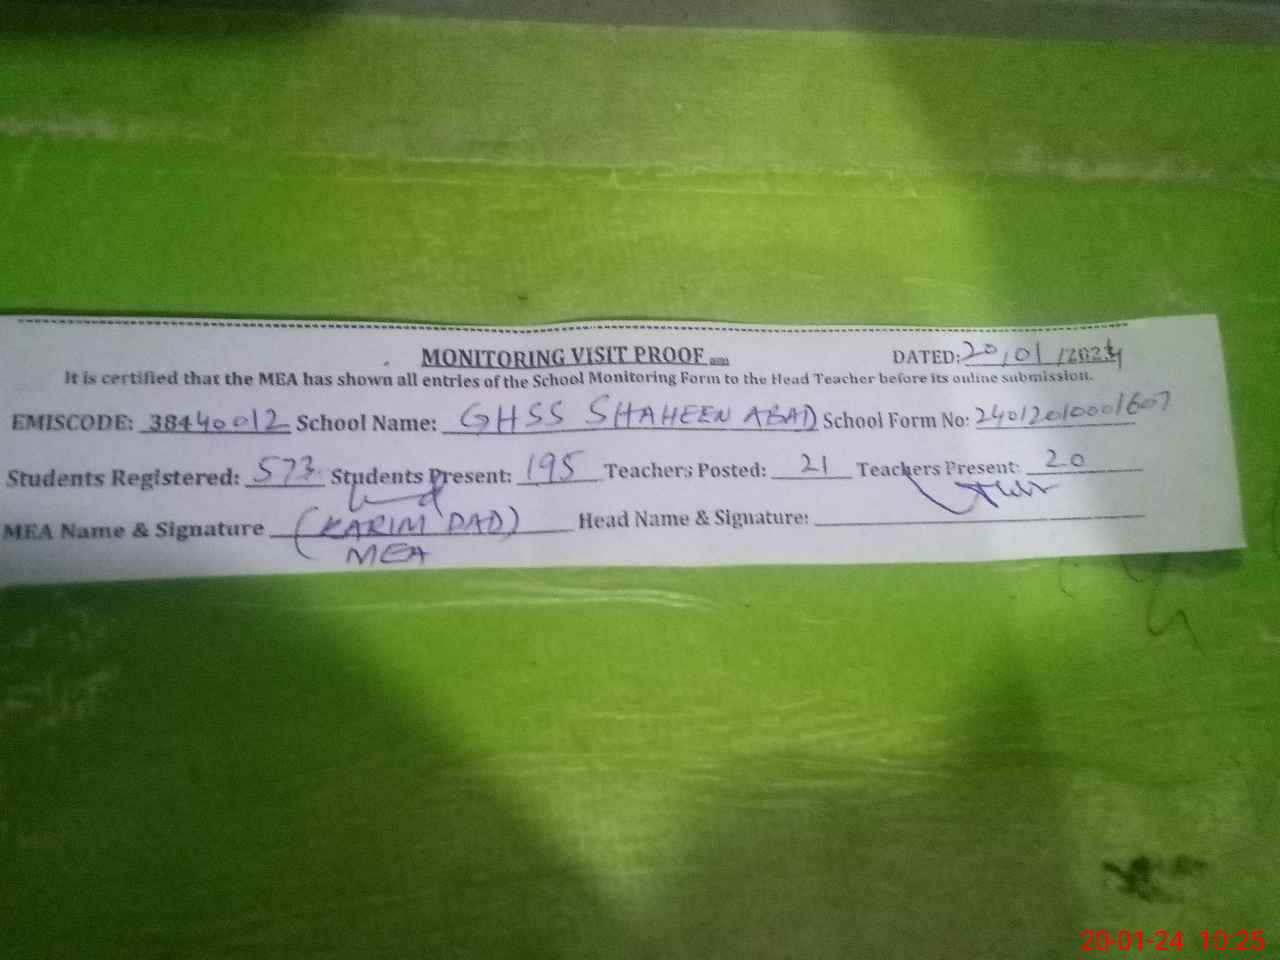 MONITORING VISIT PROOF
DATED: 20/01/2024
It is certified that the MEA has shown all entries of the School Monitoring Form to the Head Teacher before its online submission.
EMISCODE: 38440012 School Name: GHSS SHAHEEN ABAD School Form No: 24012010001607
Students Registered: 573 Students Present: 195 Teachers Posted: 21 Teachers Present: 20
MEA Name & Signature (KARIM DAD) Head Name & Signature:
MEA
20-01-24 10:25